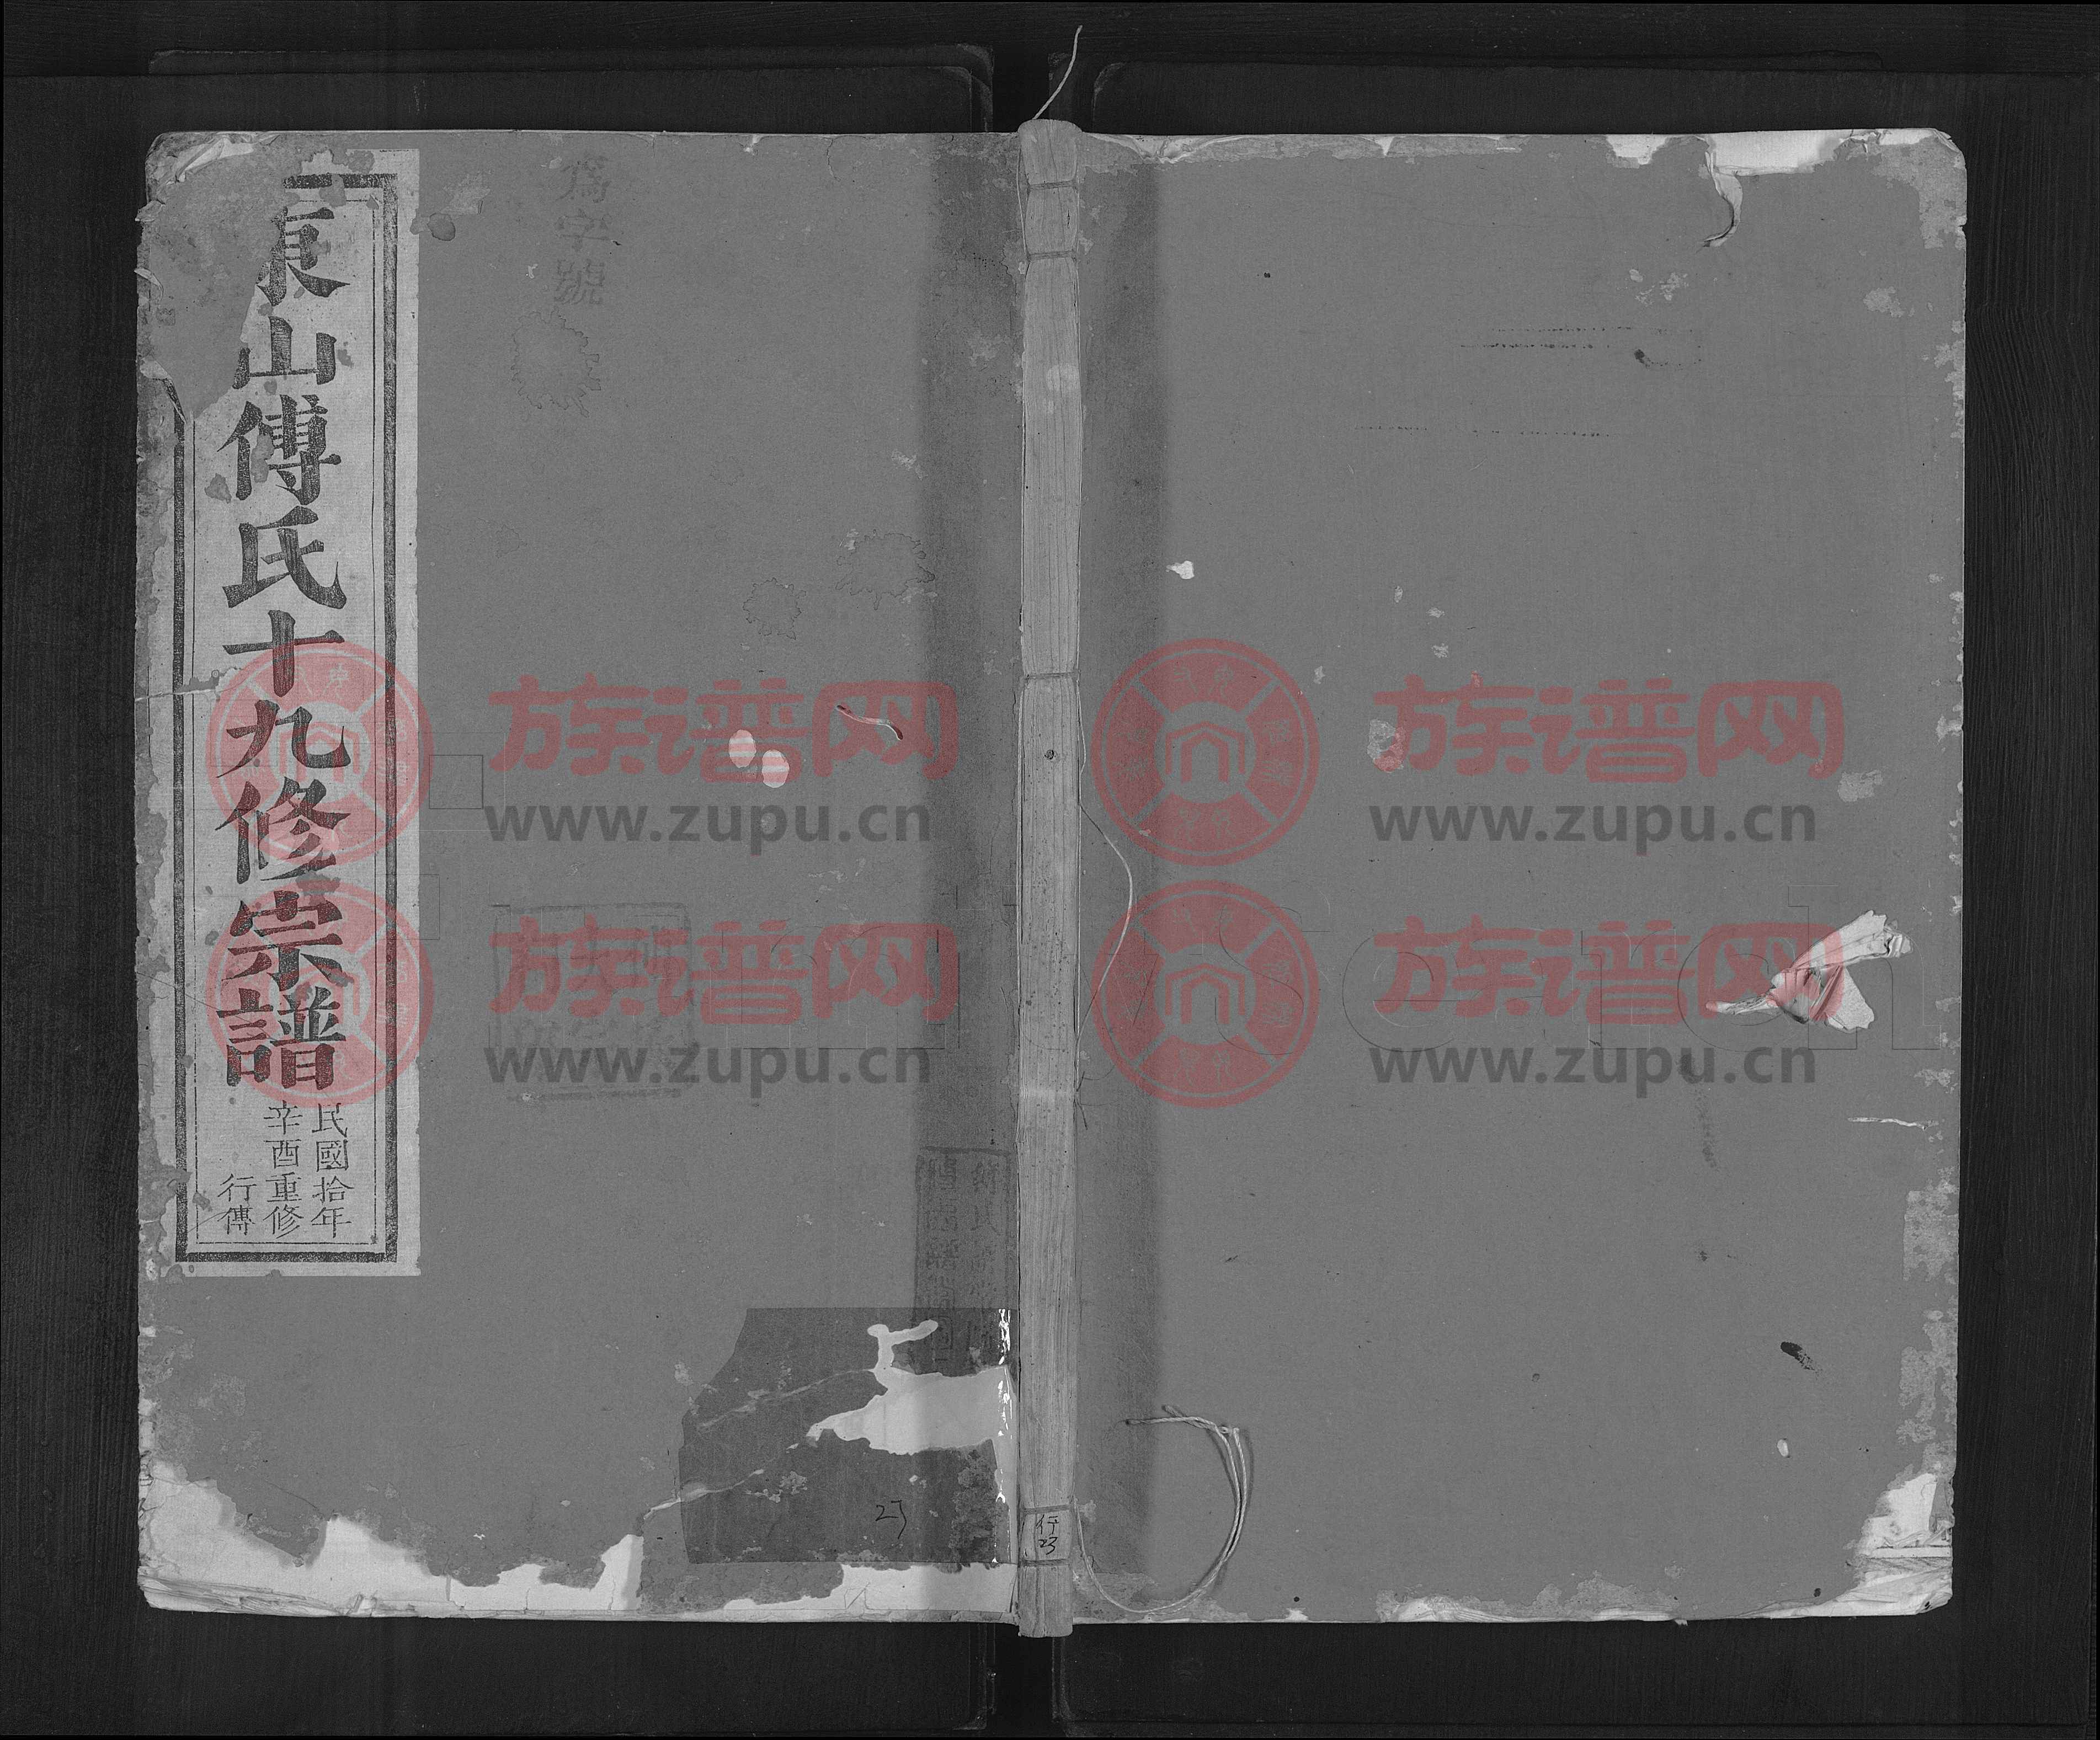 東山傅氏十九修宗譜
民國拾年
辛酉重修
行傳
爲字號
族谱网
www.zupu.cn
族谱网
www.zupu.cn
族谱网
www.zupu.cn
族谱网
www.zupu.cn
23
行
23